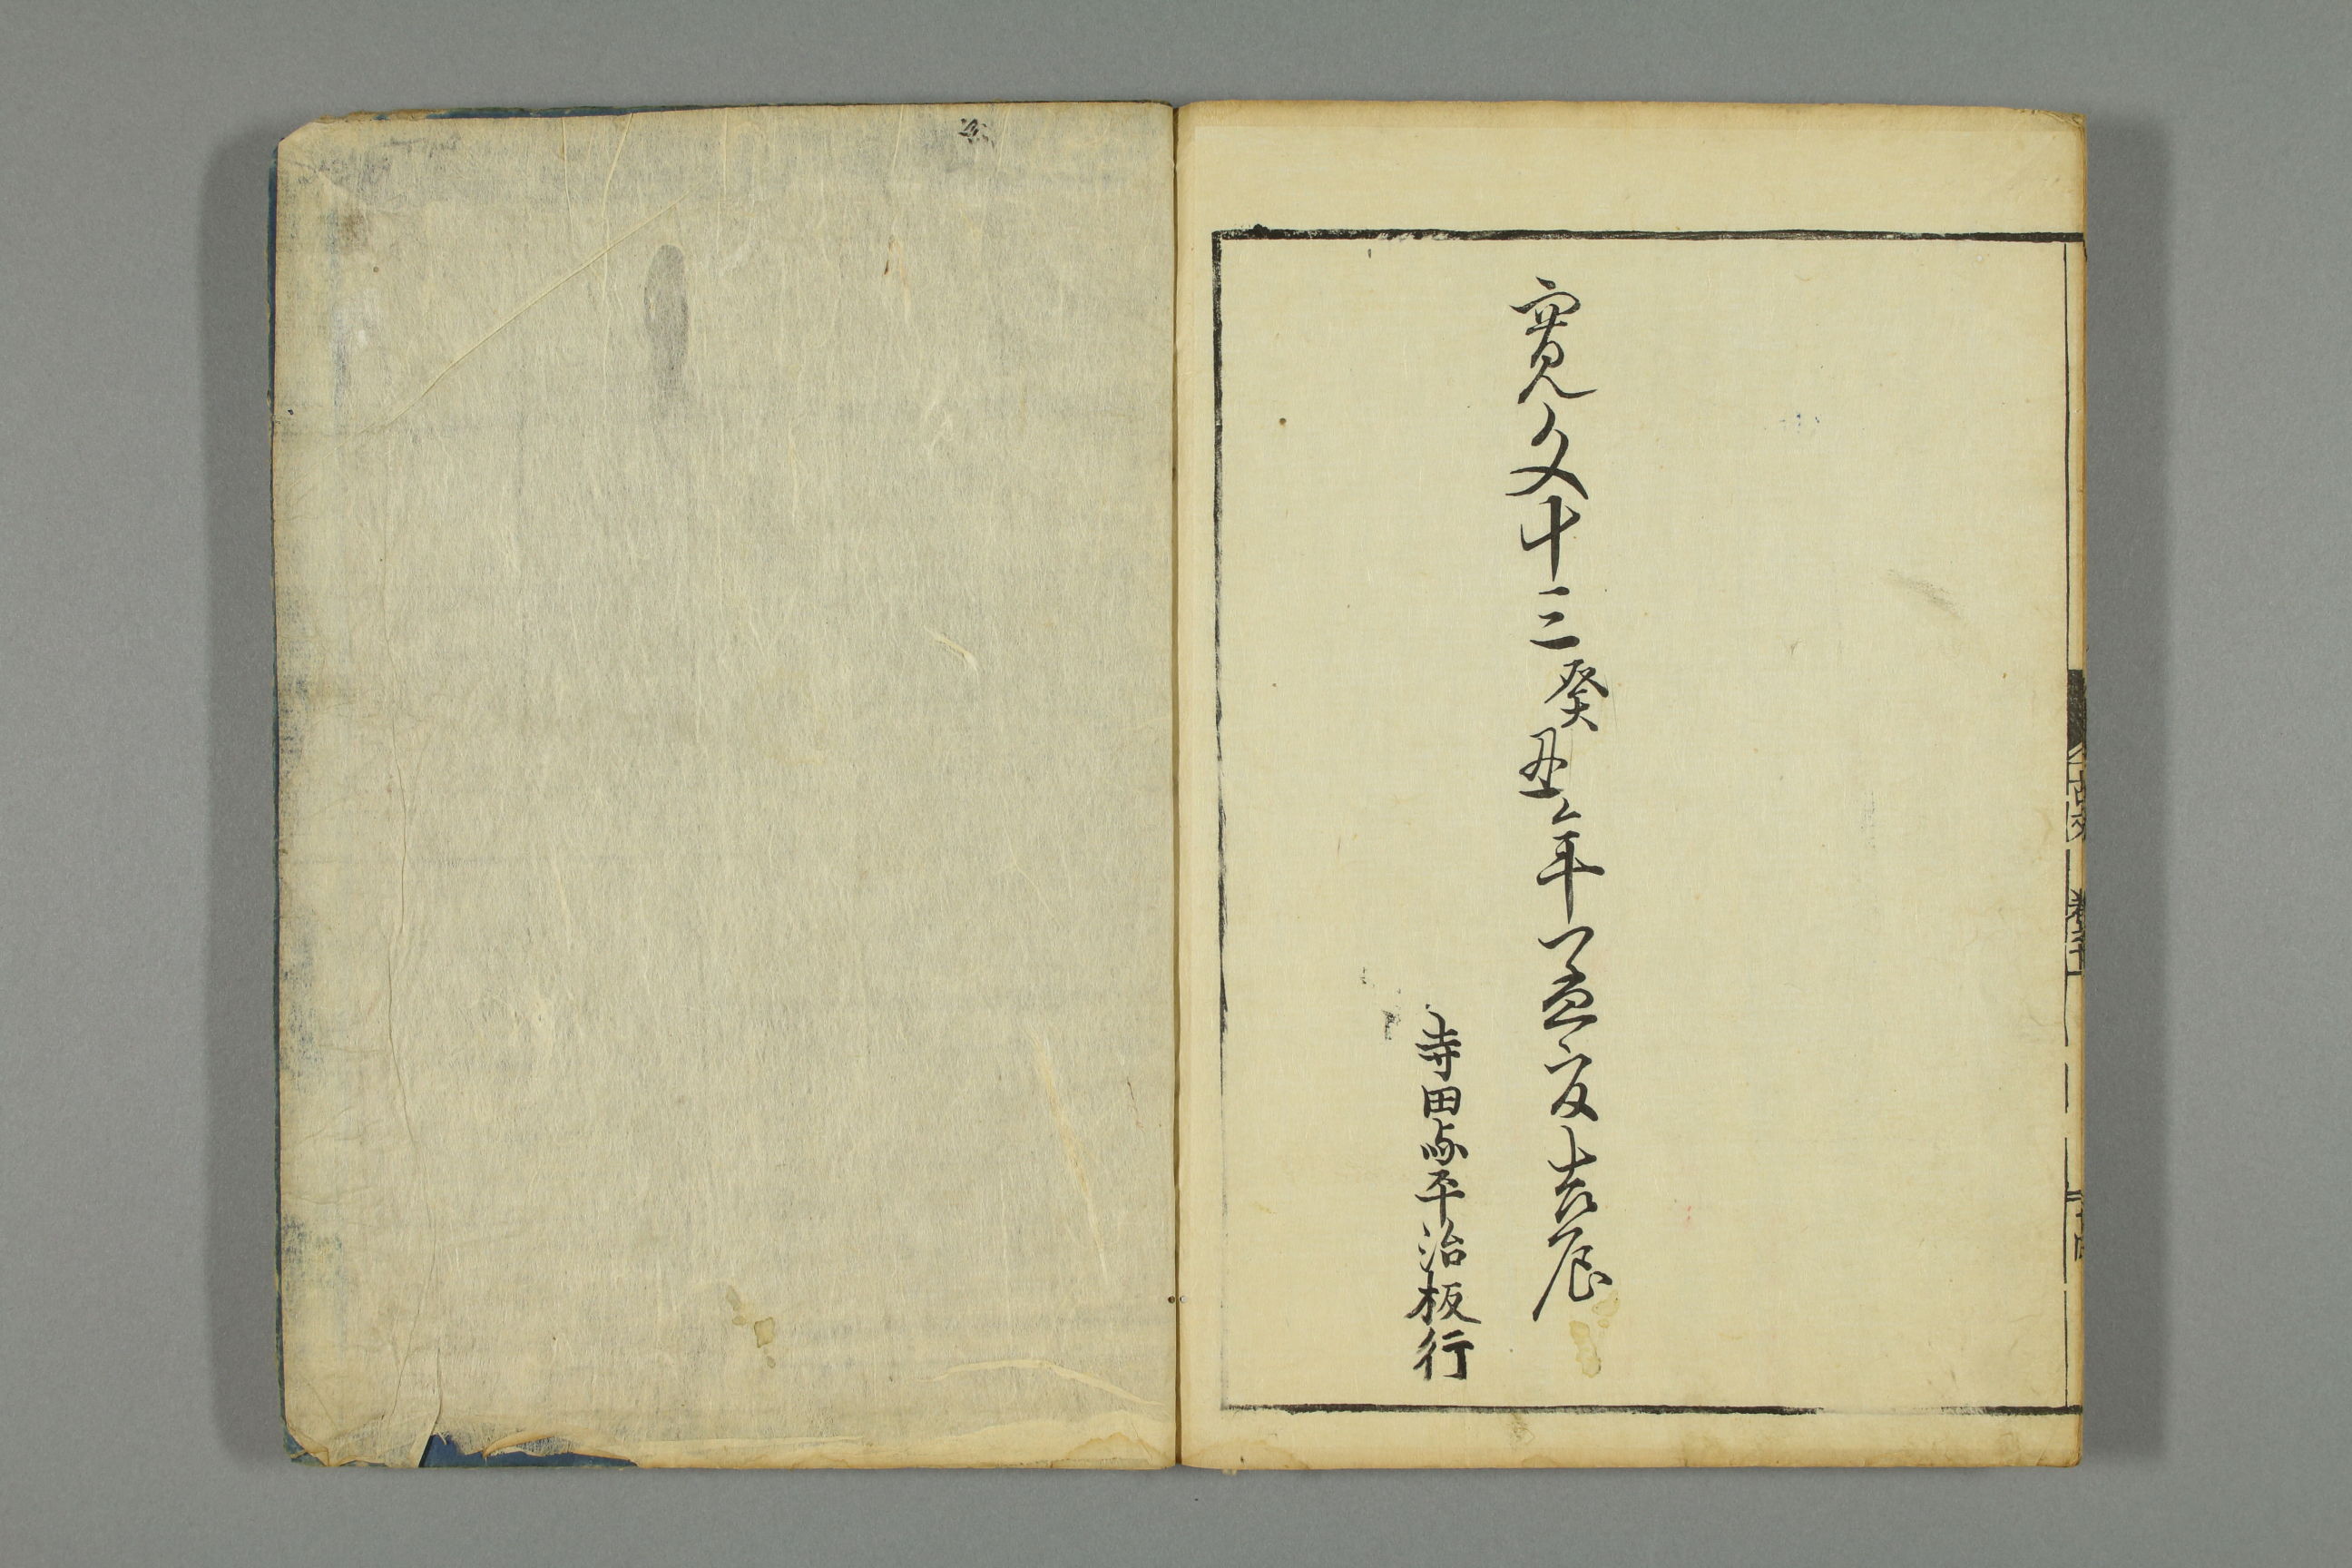 寛文十三癸丑年孟夏吉辰
寺田与平治板行